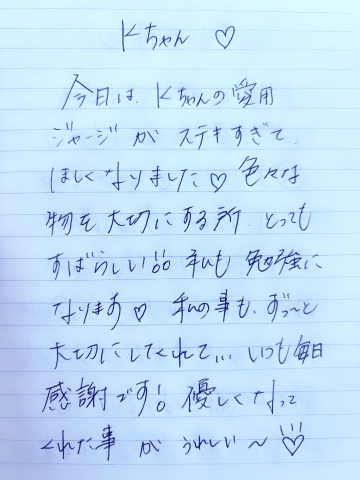 Kちゃん ♡
今日は、Kちゃんの愛用
ジャージが ステキすぎて
ほしくなりました♡ 色々な
物を大切にする所 とっても
すばらしい!! 私も 勉強に
なります♡ 私の事も、ずっ〜と
大切にしてくれて... いつも毎日
感謝です! 優しくなって
くれた事が うれしい〜♡